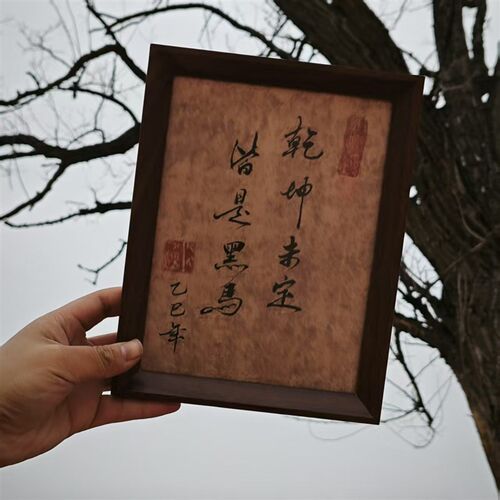 乾坤未定
皆是黑馬
乙巳年